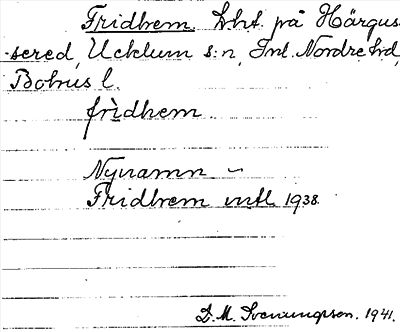 Fridhem. Lht. på Härgus-
sered, Ucklum s:n, Inl. Nordre hd,
Bohus l.
fridhem.
Nynamn –
Fridhem mtl 1938.
D. M. Svenungsson. 1941.